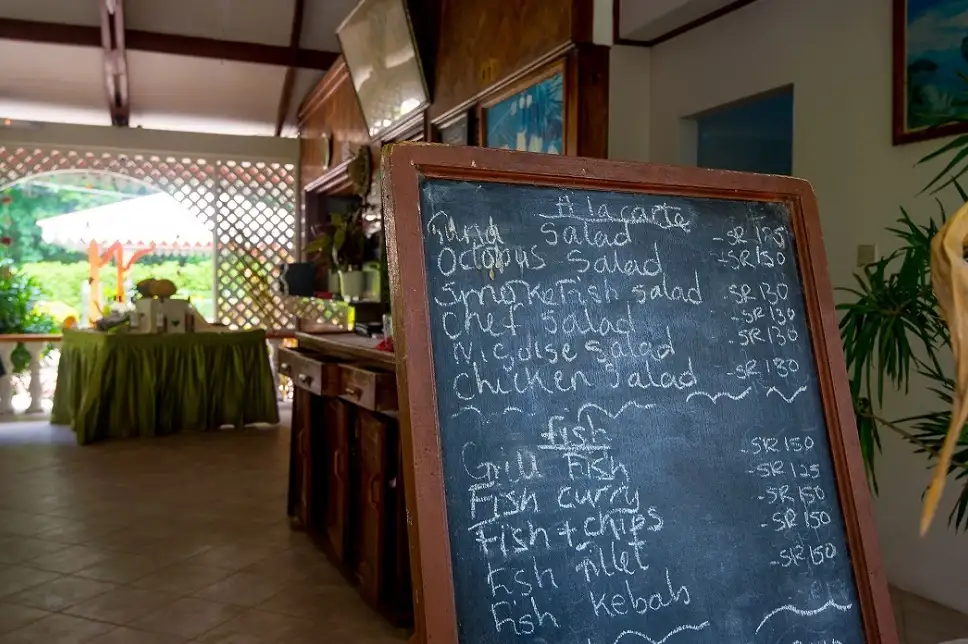 A la carte
Tuna Salad - SR 125
Octopus Salad - SR 150
Smorkefish Salad - SR 130
Chef Salad - SR 130
Nicoise Salad - SR 130
Chicken Salad - SR 130
fish
Grill Fish - SR 150
Fish curry - SR 125
Fish + chips - SR 150
Fish fillet - SR 150
Fish kebab - SR 150